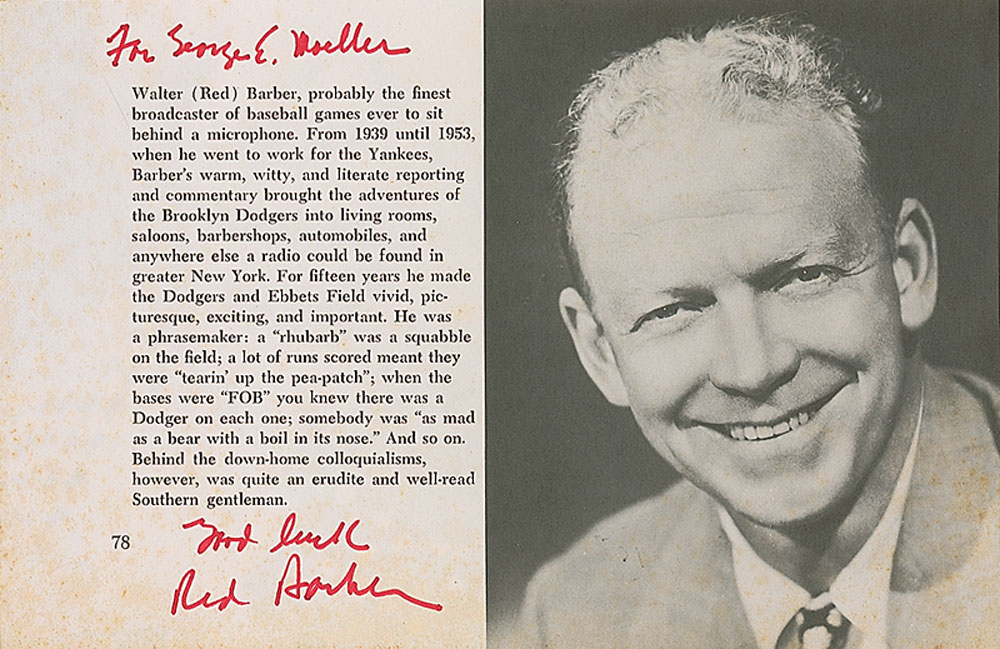 For George E. Moeller
Walter (Red) Barber, probably the finest
broadcaster of baseball games ever to sit
behind a microphone. From 1939 until 1953,
when he went to work for the Yankees,
Barber's warm, witty, and literate reporting
and commentary brought the adventures of
the Brooklyn Dodgers into living rooms,
saloons, barbershops, automobiles, and
anywhere else a radio could be found in
greater New York. For fifteen years he made
the Dodgers and Ebbets Field vivid, pic-
turesque, exciting, and important. He was
a phrasemaker: a "rhubarb" was a squabble
on the field; a lot of runs scored meant they
were "tearin' up the pea-patch"; when the
bases were "FOB" you knew there was a
Dodger on each one; somebody was "as mad
as a bear with a boil in its nose." And so on.
Behind the down-home colloquialisms,
however, was quite an erudite and well-read
Southern gentleman.
78
Good luck
Red Barber